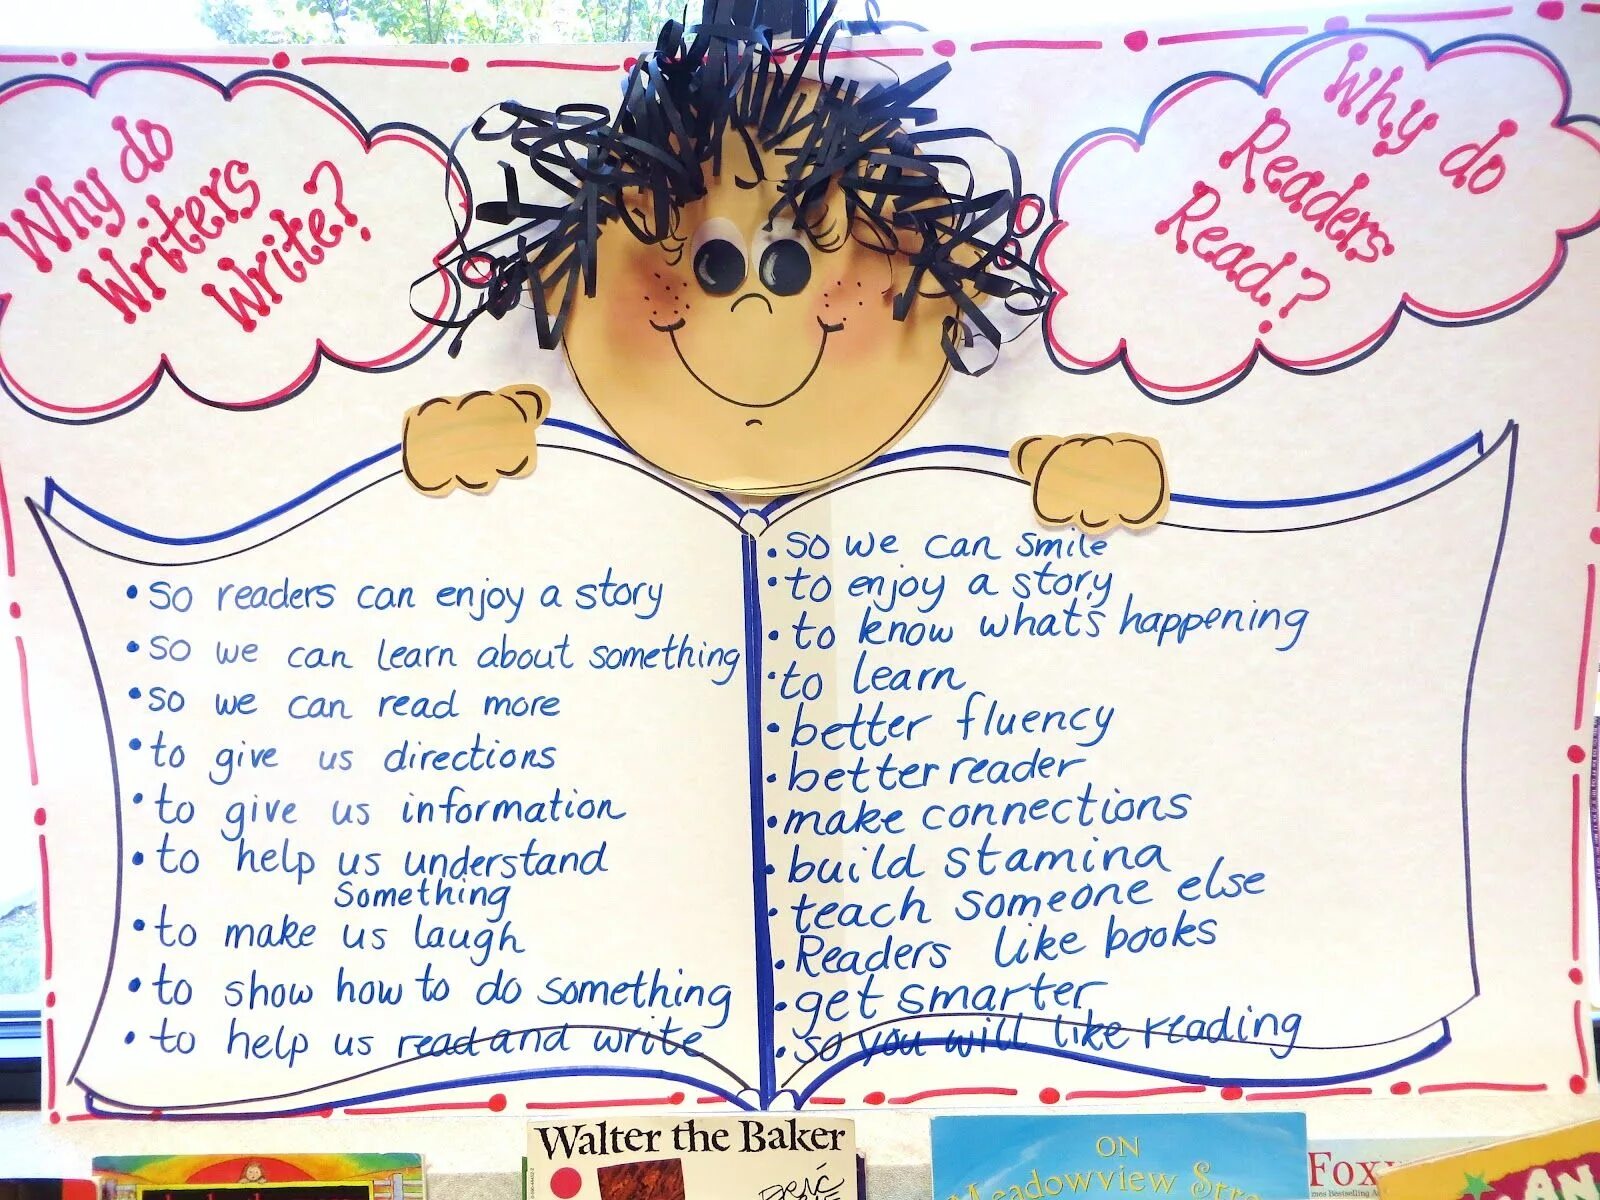 Why do
Writers
Write?
Why do
Readers
Read?
• so readers can enjoy a story
• so we can learn about something
• so we can read more
• to give us directions
• to give us information
• to help us understand
something
• to make us laugh
• to show how to do something
• to help us read and write
• so we can smile
• to enjoy a story
• to know what's happening
• to learn
• better fluency
• better reader
• make connections
• build stamina
• teach someone else
• Readers like books
• get smarter
• so you will like reading
Walter the Baker
ON
Meadowview